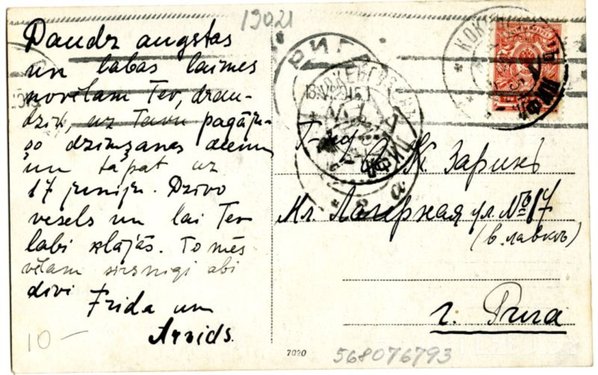 13021
Daudz augstas
un labas laimes
novēlam Tev, drau-
dziņ, uz Tavu pagāju-
šo dzimšanas dienu
un tāpat uz
17 juniju. Dzīvo
vesels un lai Tev
labi klājās. To mēs
vēlam sirsnīgi abi
divi
Frida un
Arvids.
10-
РИГ
К. Заринъ
Мл. Лагерная ул № 17
(в. лавкѣ)
г. Рига
7020
568076793